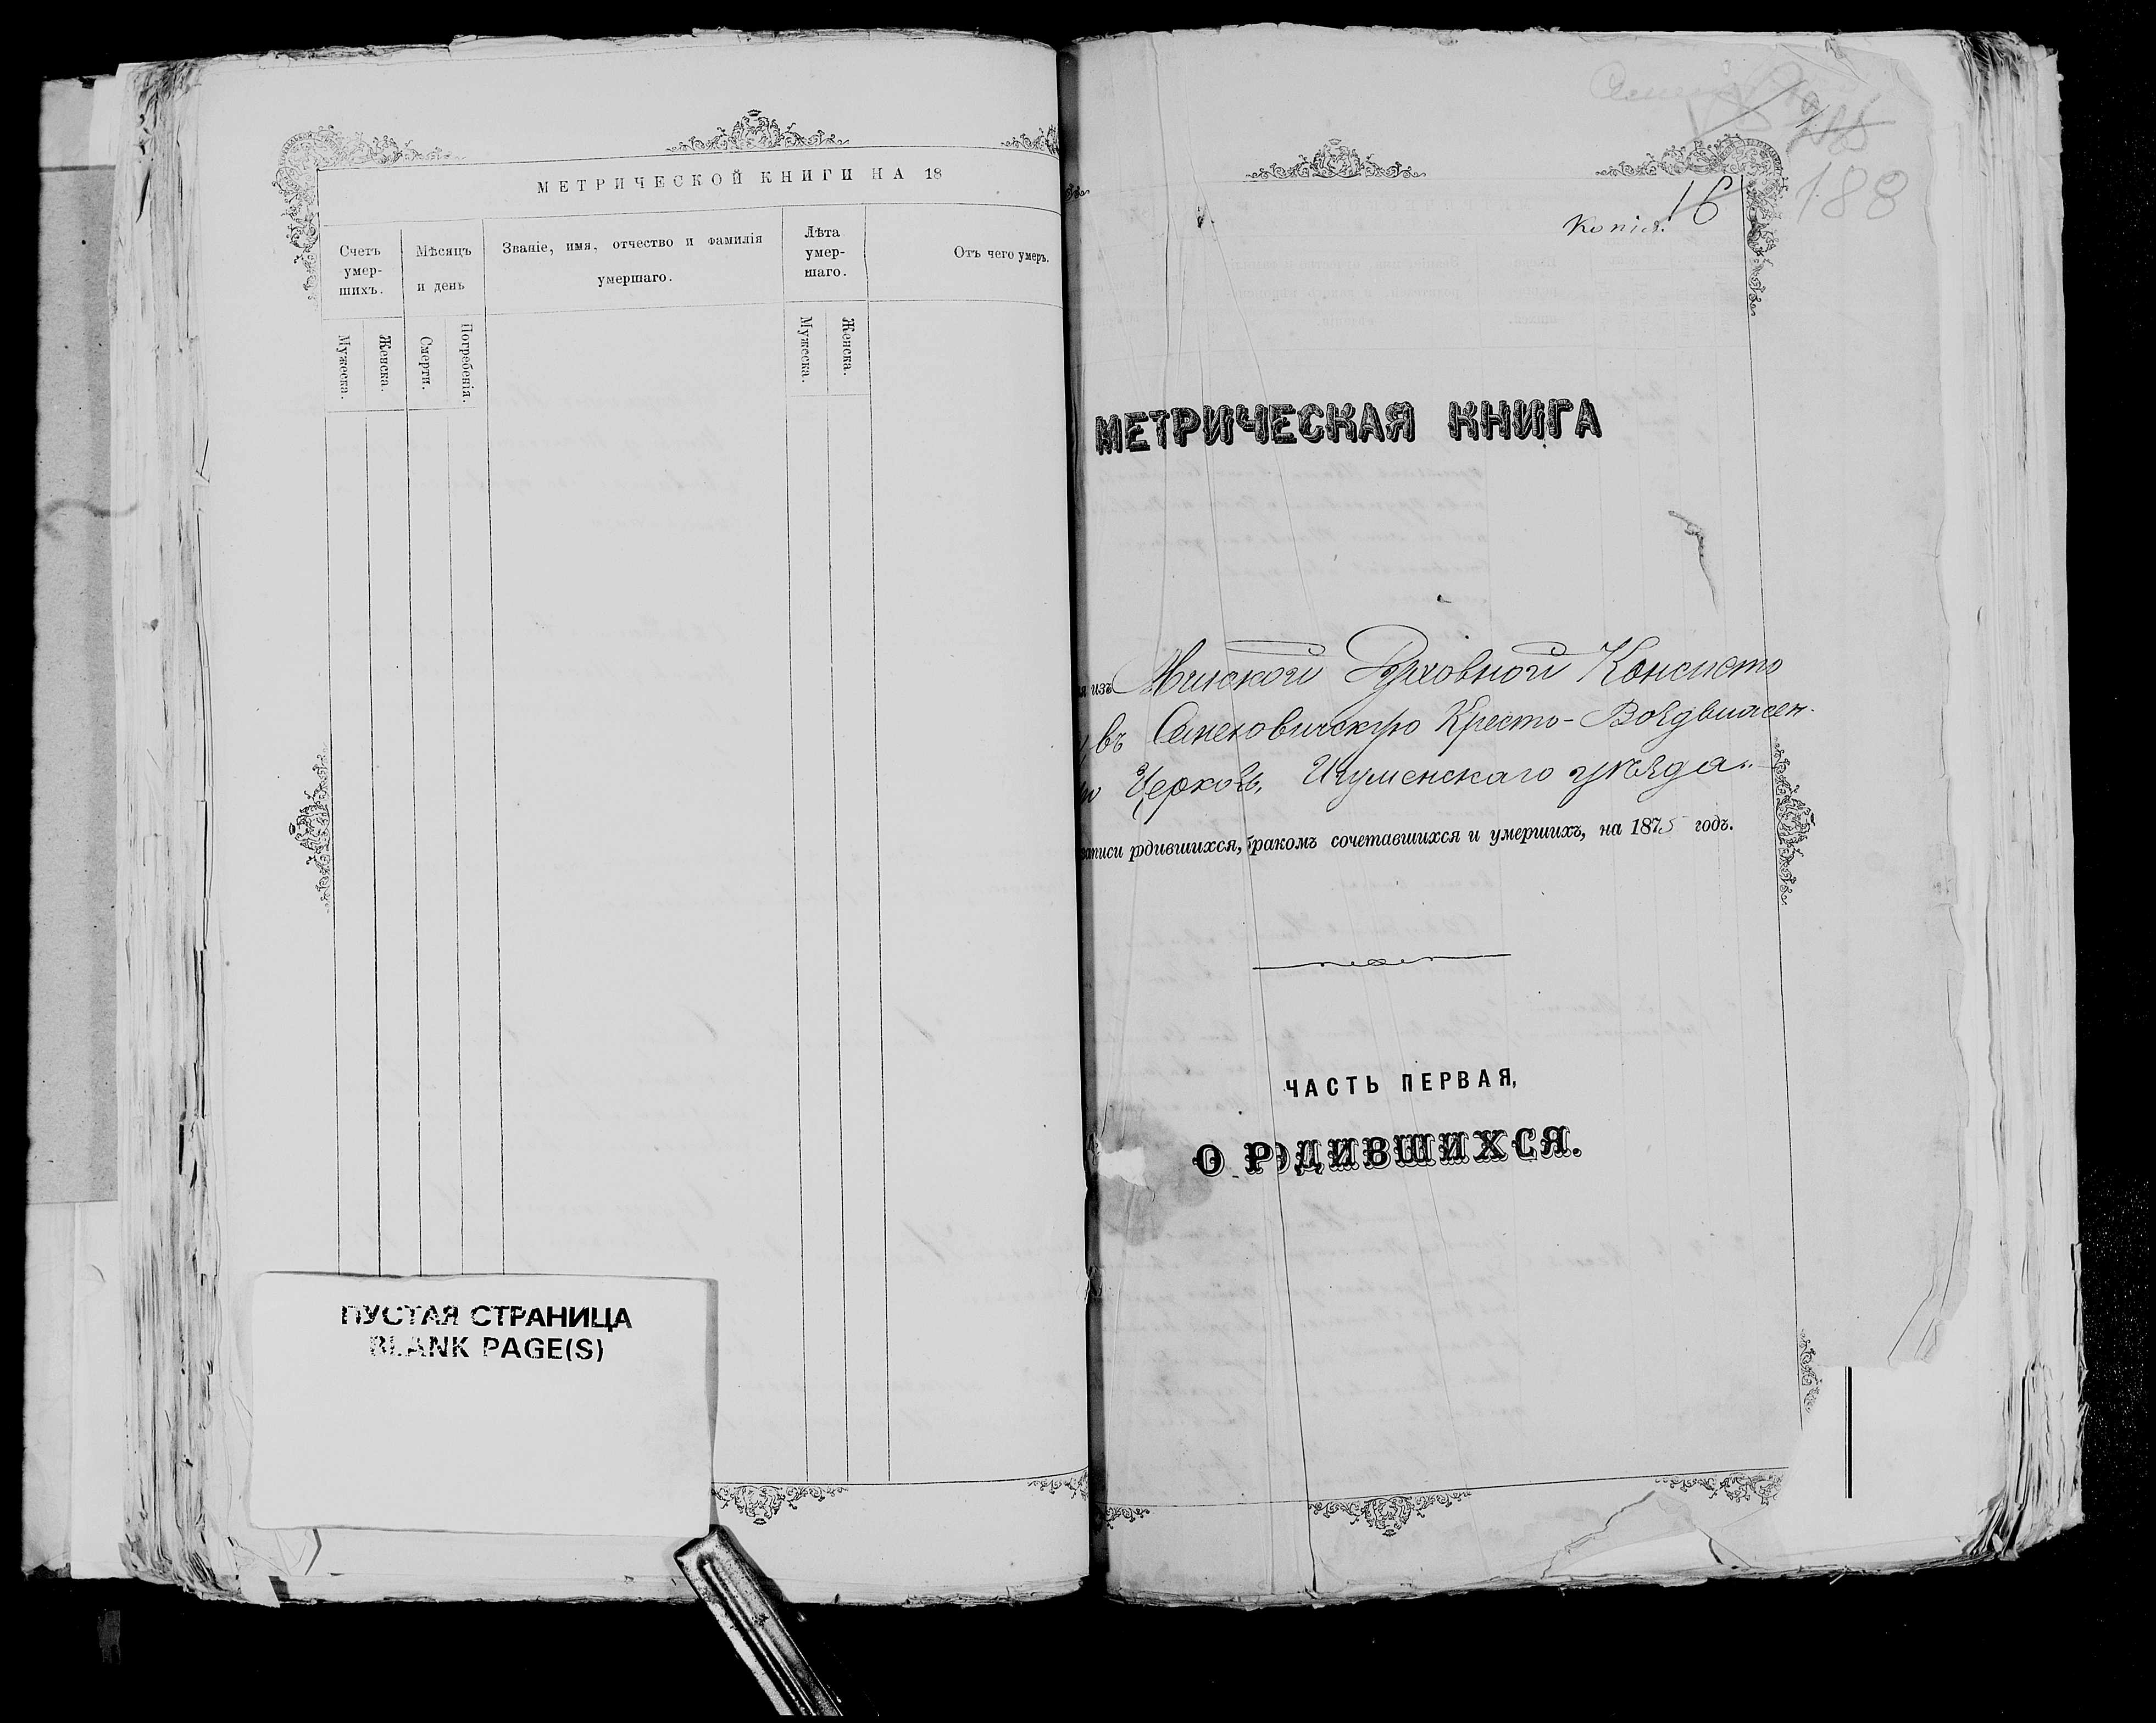 МЕТРИЧЕСКОЙ КНИГИ НА 18
Счетъ умер-
шихъ.
Мѣсяцъ
и день
Званіе, имя, отчество и фамилія
умершаго.
Лѣта
умер-
шаго.
Отъ чего умеръ.
Мужеска.
Женска.
Смерти.
Погребенія.
Мужеска.
Женска.
ПУСТАЯ СТРАНИЦА
BLANK PAGE(S)
188
16
Копія.
МЕТРИЧЕСКАЯ КНИГА
изъ Минской Духовной Консисто
въ Семеновичскую Кресто-Воздвижен-
Церковь, Игуменскаго уѣзда
записи родившихся, бракомъ сочетавшихся и умершихъ, на 1875 годъ.
ЧАСТЬ ПЕРВАЯ,
О РОДИВШИХСЯ.